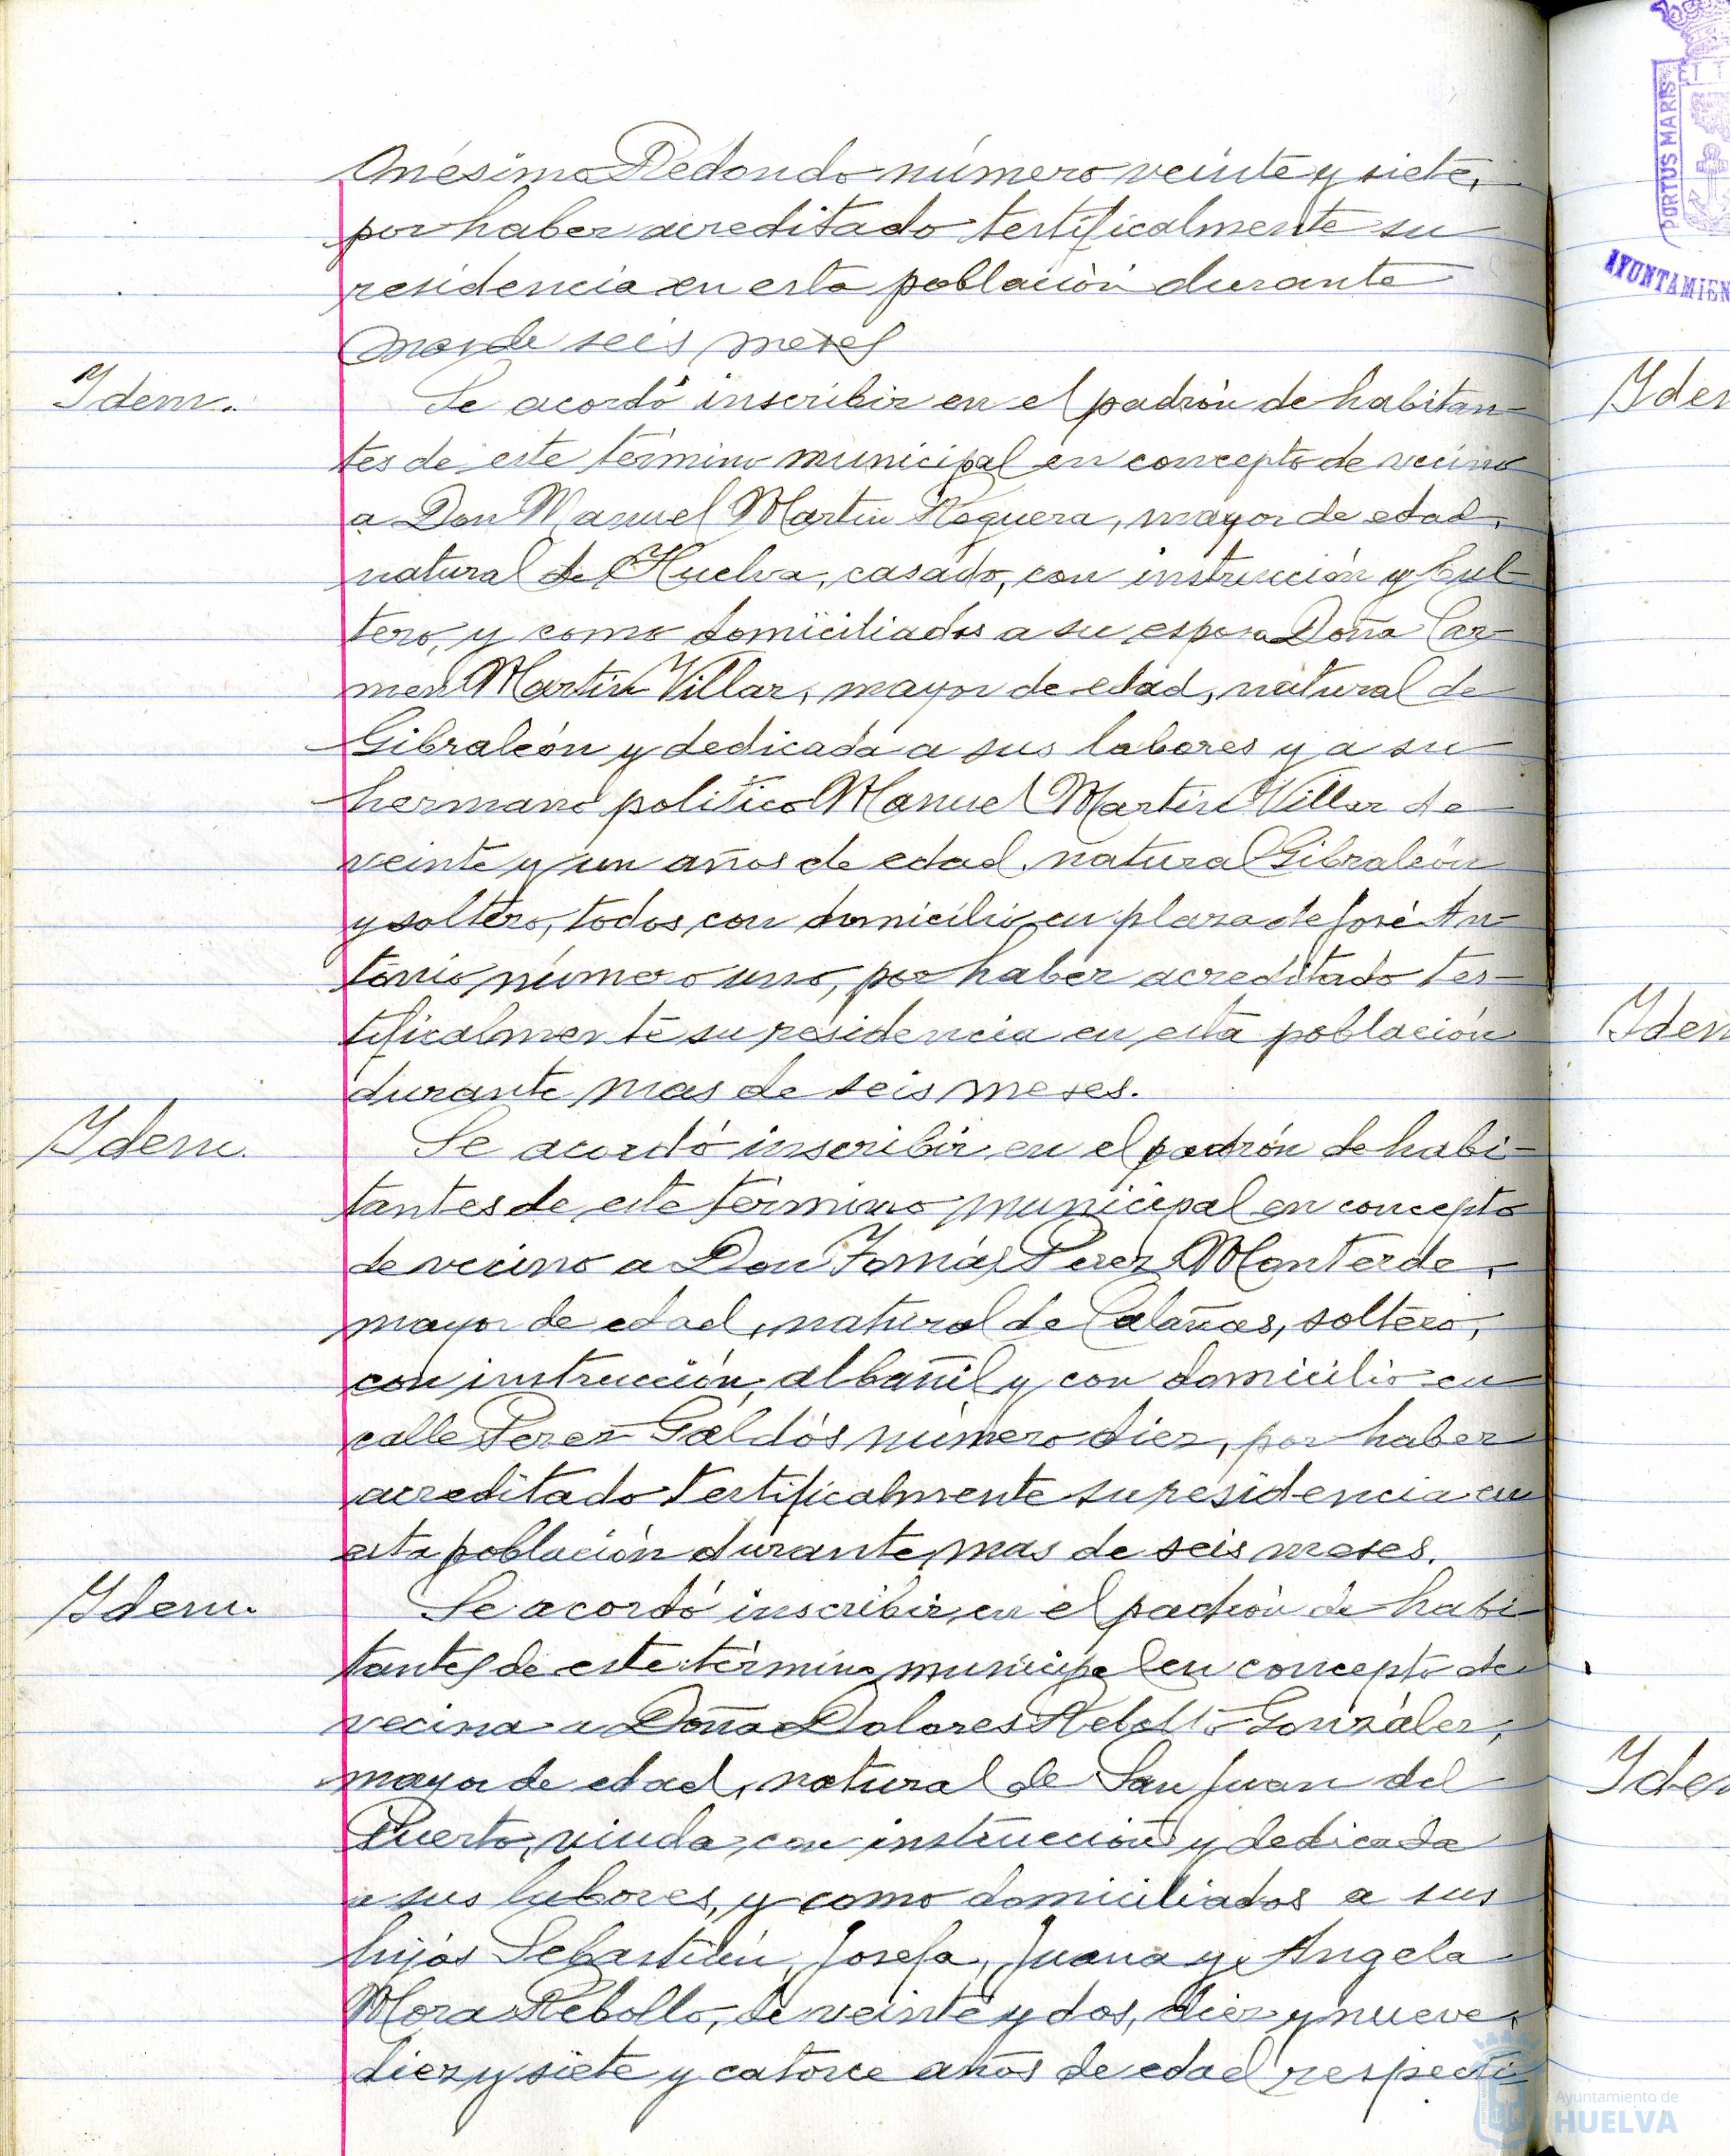 Onésimo Redondo número veinte y siete,
por haber acreditado testificalmente su
residencia en esta población durante
mas de seis meses
Idem.
Se acordó inscribir en el padrón de habitan-
tes de este término municipal en concepto de vecino
a Don Manuel Martin Noguera, mayor de edad,
natural de Huelva, casado, con instrucción y
tero, y como domiciliados a su esposa Doña Car-
men Martin Villar, mayor de edad, natural de
Gibraleón y dedicada a sus labores y a su
hermano politico Manuel Martin Villar de
veinte y un años de edad, natural Gibraleón
y soltero, todos con domicilio en plaza de José An-
tonio número uno, por haber acreditado tes-
tificalmente su residencia en esta población
durante mas de seis meses.
Idem.
Se acordó inscribir en el padrón de habi-
tantes de este término municipal en concepto
de vecino a Don Tomás Perez Monterde,
mayor de edad, natural de Calañas, soltero,
con instrucción, albañil y con domicilio en
calle Perez Galdós número diez, por haber
acreditado testificalmente su residencia en
esta población durante mas de seis meses.
Idem.
Se acordó inscribir en el padrón de habi-
tantes de este término municipal en concepto de
vecina a Doña Dolores Rebollo González,
mayor de edad, natural de San Juan del
Puerto, viuda, con instrucción y dedicada
a sus labores, y como domiciliados a sus
hijos Sebastián, Josefa, Juana y Angela
Mora Rebollo, de veinte y dos, diez y nueve,
diez y siete y catorce años de edad respecti
PORTUS MARIS
ET T
AYUNTAMIEN
Iden
Idem
Iden
Ayuntamiento de
HUELVA